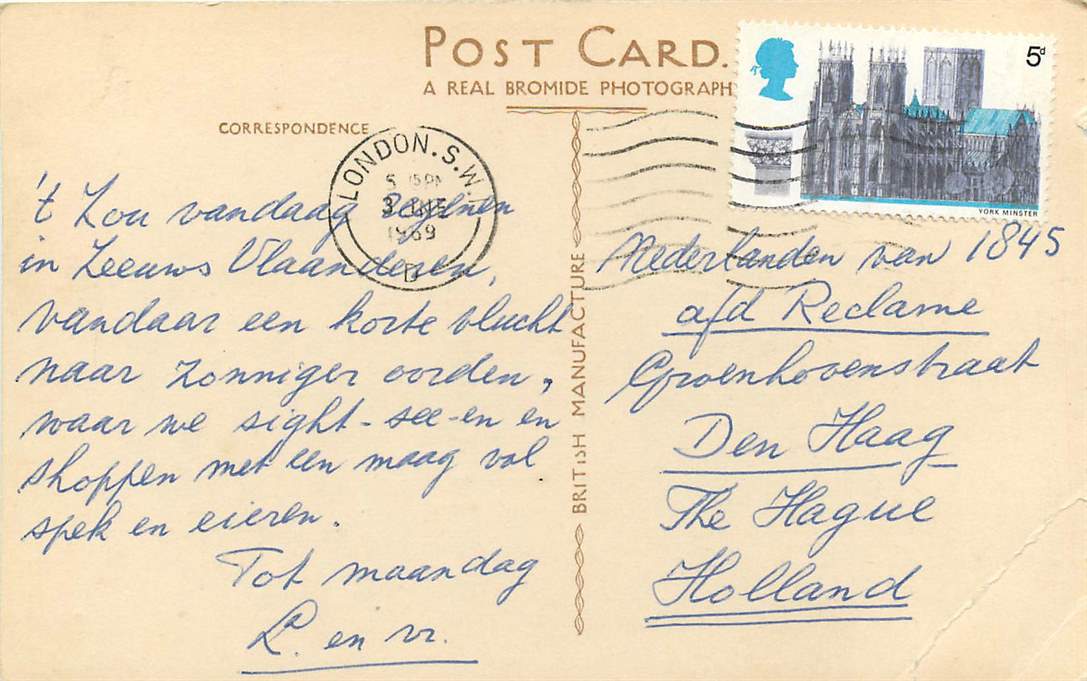 POST CARD.
A REAL BROMIDE PHOTOGRAPH
CORRESPONDENCE
BRITISH MANUFACTURE
5d
YORK MINSTER
LONDON. S.W.1
3 JNE
1969
D
't Zou vandaag regenen
in Zeeuws Vlaanderen,
vandaar een korte vlucht
naar zonniger oorden,
waar we sight-see-en en
shoppen met een maag vol
spek en eieren.
Tot maandag
en vr.
Nederlanden van 1845
afd Reclame
Groenhovenstraat
Den Haag
The Hague
Holland